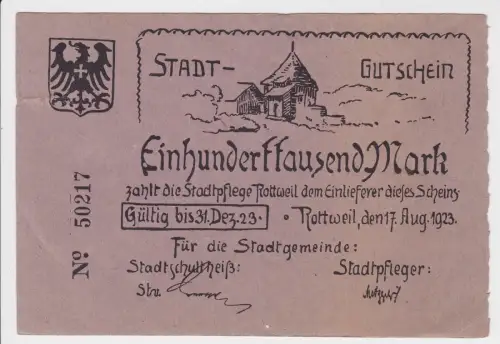 STADT- GUTSCHEIN
Einhunderttausend Mark
zahlt die Stadtpflege Rottweil dem Einlieferer dieses Scheins
Gültig bis 31. Dez. 23. • Rottweil, den 17. Aug. 1923.
Für die Stadtgemeinde:
Stadtschultheiß: Stadtpfleger:
Stv.
No 50217